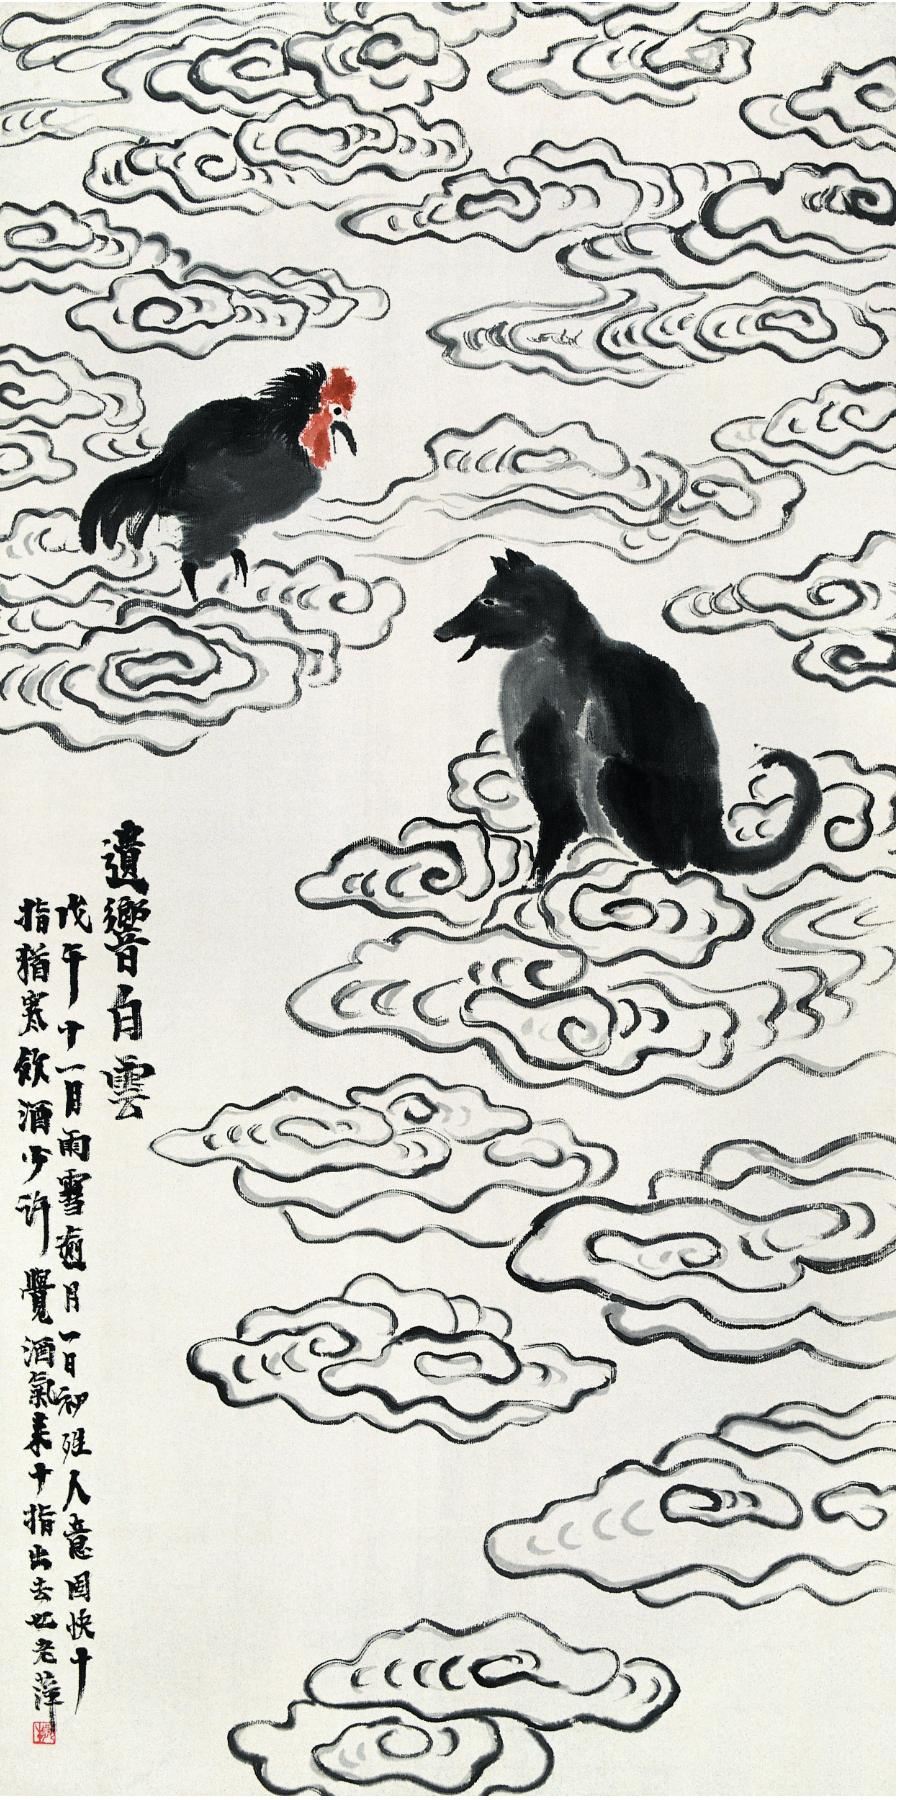 遺響白雲
戊午十一月雨雪逾月一日初姓人意固快十
指猶寒飲酒少許覺酒氣來十指出去也老萍